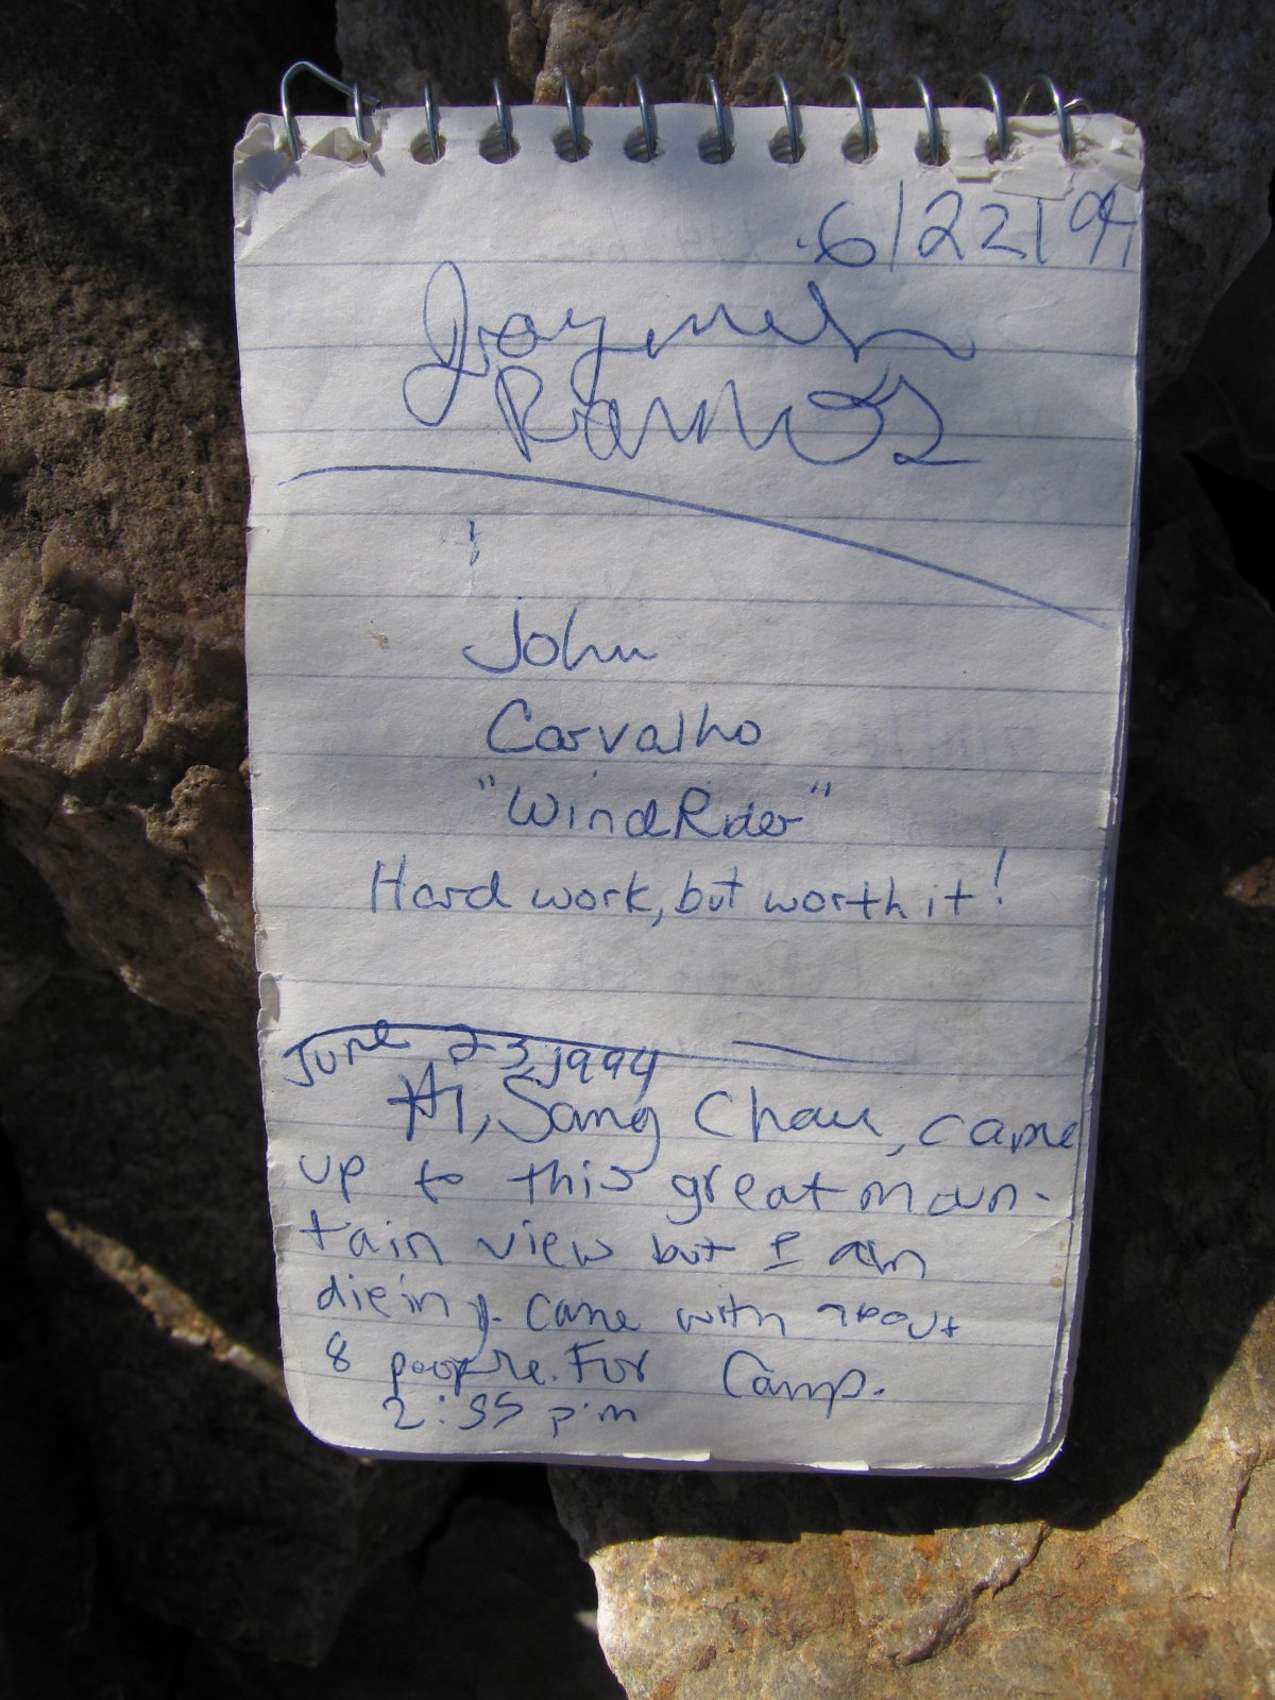 6/22/94
Ramos
John
Carvalho
"WindRider"
Hard work, but worth it!
June 23, 1994
Hi, Sang Chau, came
up to this great moun-
tain view but I am
dieing. came with about
8 people. For Camp.
2:35 p.m